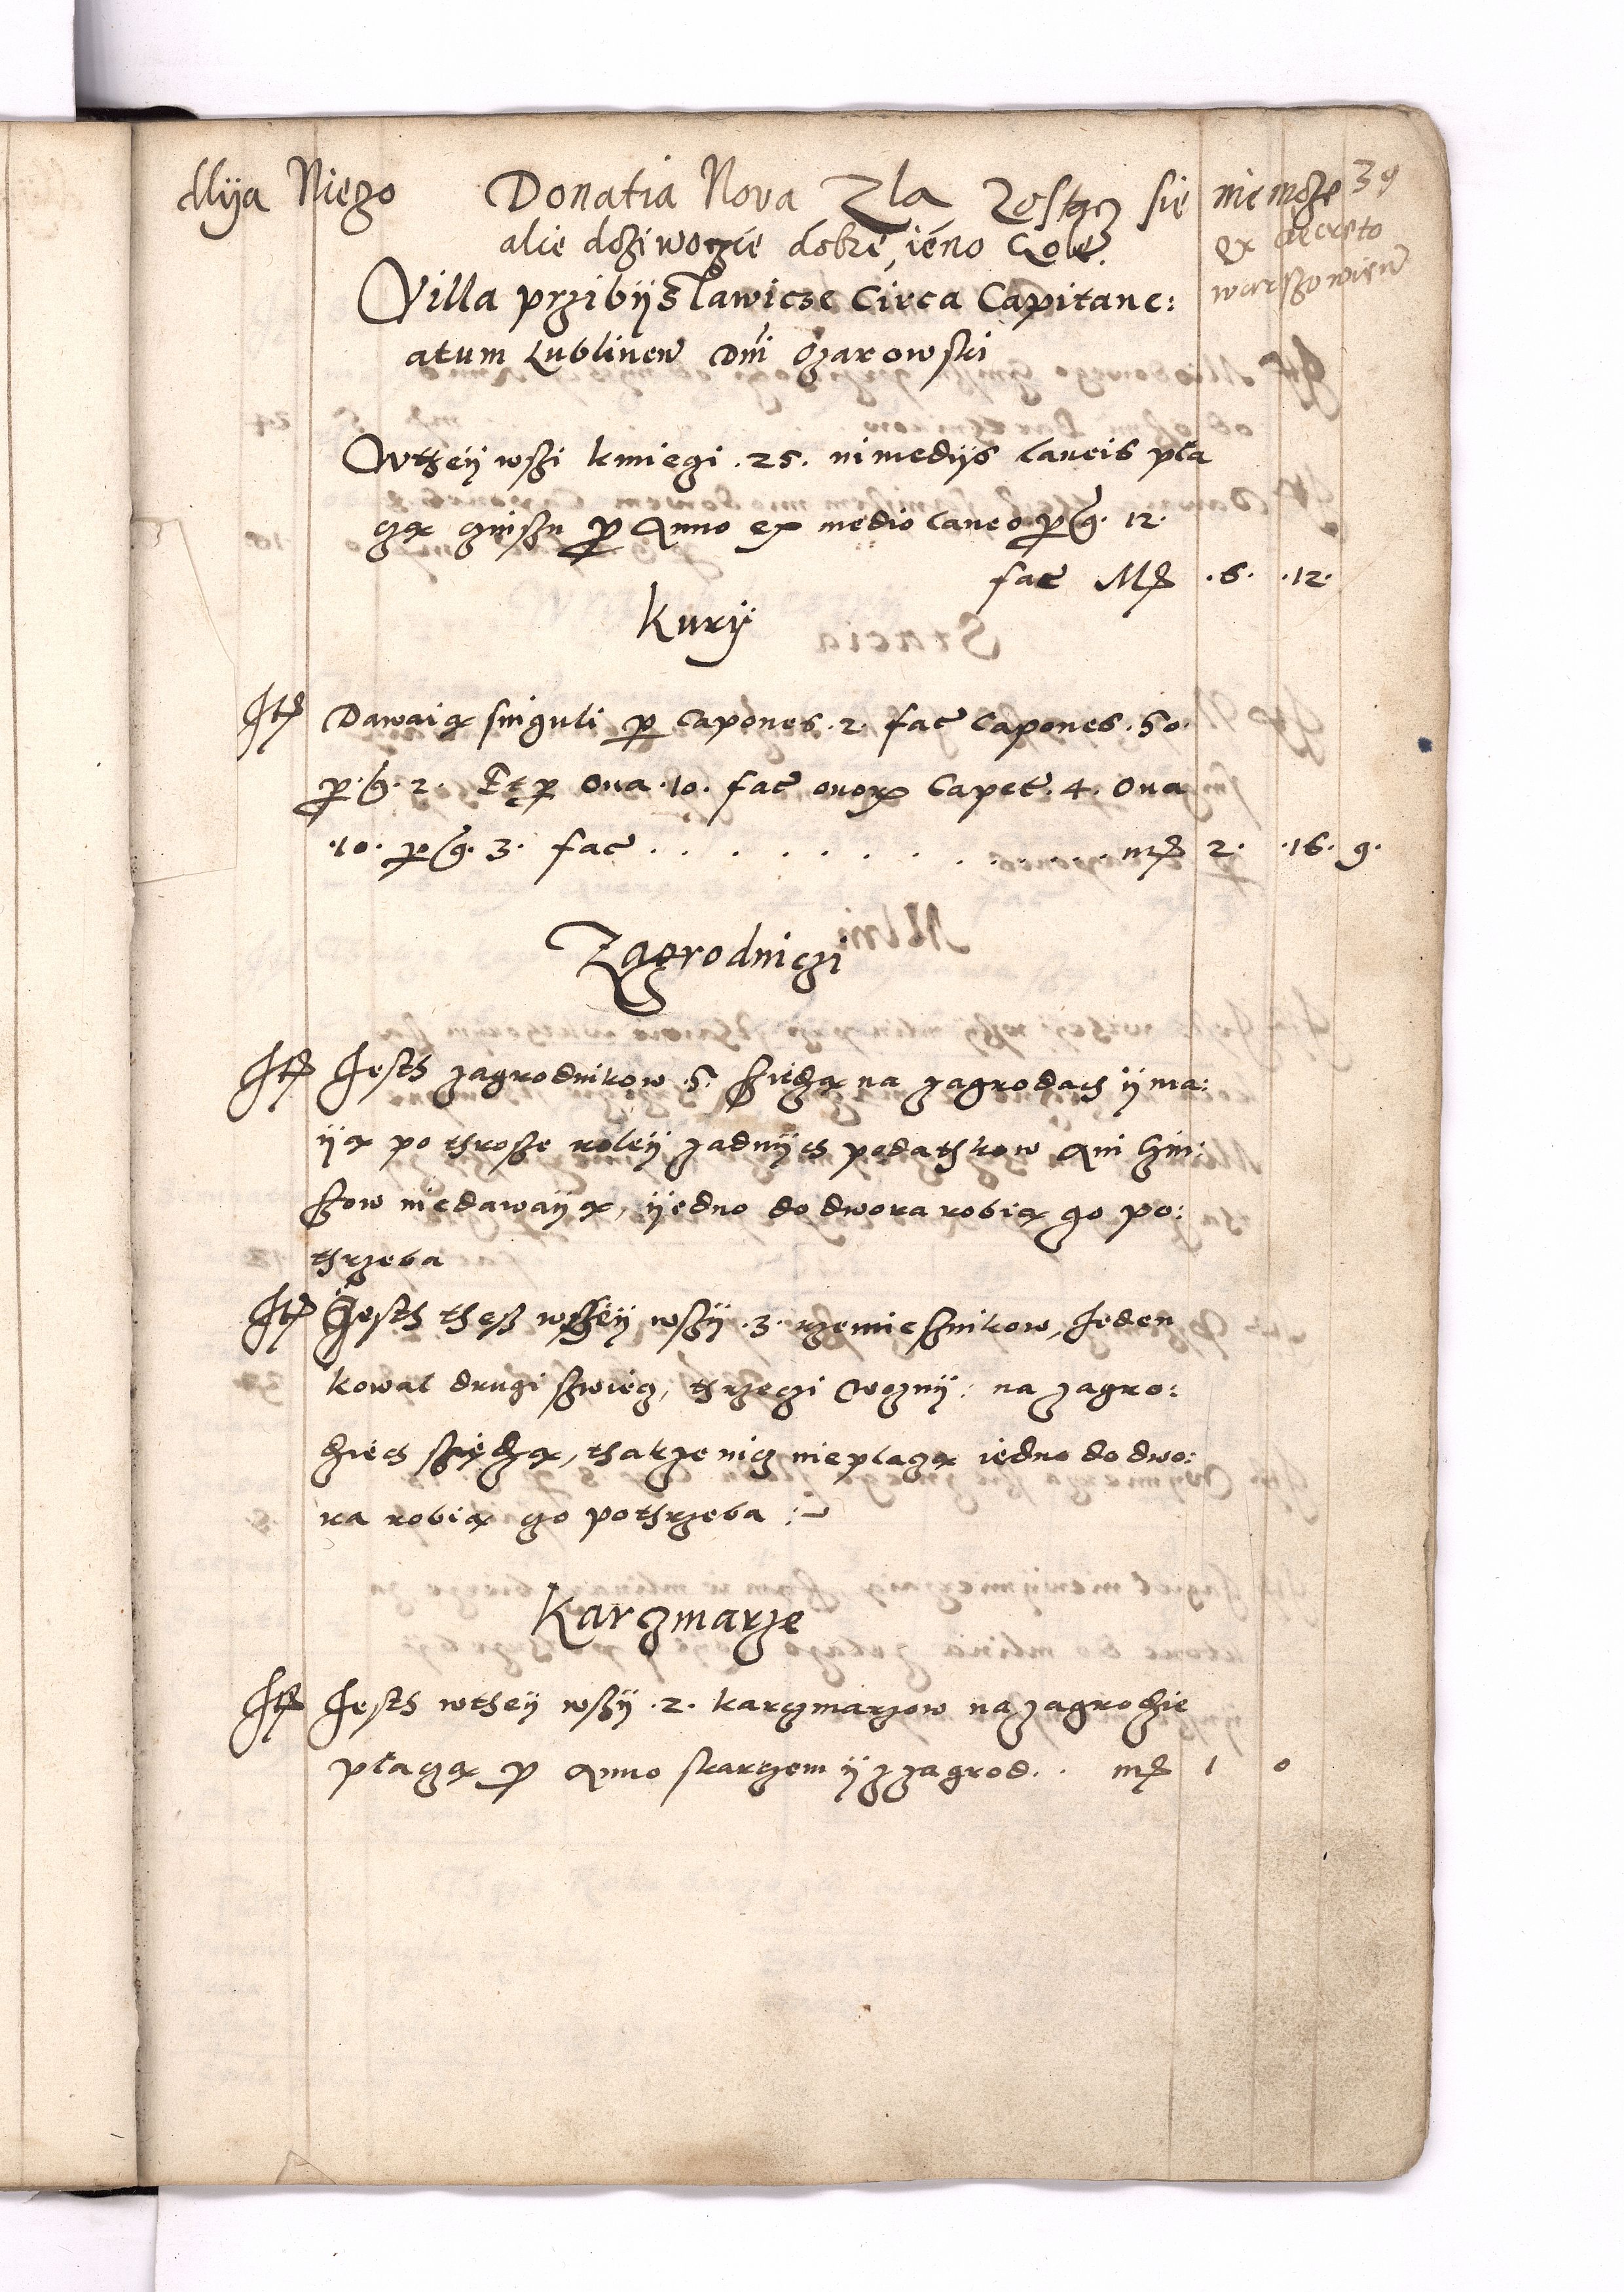 Mija Niego Donatia Nova Zla Zostacz się nie može 39
ale džiwoczie dobre, ieno Cole.
ex decreto
warszowien
Villa przibijslawicze Circa Capitane:
atum Lublinen Dni Ožarowski
Wtheÿ wszi kmieczi .25. in medijs laneis pla
czą czinszu p Anno ex medio laneo p g. 12.
fac Mr .6. .12.
Kurÿ
Itr Dawaią singuli p Capones .2. fac Capones .50.
p g. 2. Et p Oua .10. fac ouor Capet. 4. Oua
.10. p g. 3. fac . . . . . . . . . . mr 2. .16. 9.
Zagrodniczi
Itr Jesth zagrodnikow .5. Siedzą na zagrodach ÿ ma:
ÿą po throsze roleÿ zadnÿch podathkow Ani czin:
szow nie dawaÿą, ÿedno do dwora robią go po:
thrzeba
Itr Jesth thesz wtheÿ wszÿ .3. rzemieslnikow, Jeden
kowal drugi szwiecz, thrzeczi woznÿ: na zagro:
dziech siędzą, thakze nicz nie placzą iedno do dwo:
ra robią go pothrzeba :~
Karczmarze
Itr Jesth wtheÿ wszÿ .2. karczmarzow na zagrodzie
placzą p Anno skarczem ÿ z zagrod . . mr 1 0